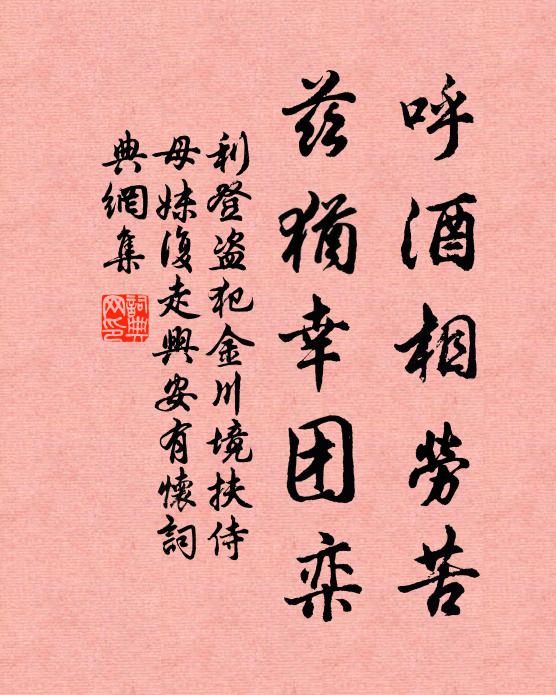 呼酒相勞苦
茲猶幸团栾
利登盗犯金川境扶侍
母妹復走興安有懷詞
典網集
詞典
网印